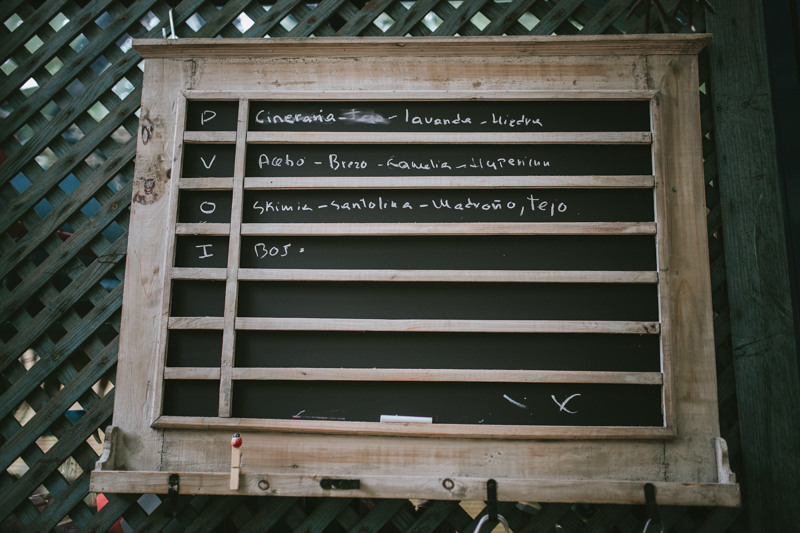 P Cineraria - - lavanda - Hiedra
V Acebo - Brezo - Camelia - Hypericum
O Skimia - Santolina - Madroño, tejo
I BOJ.